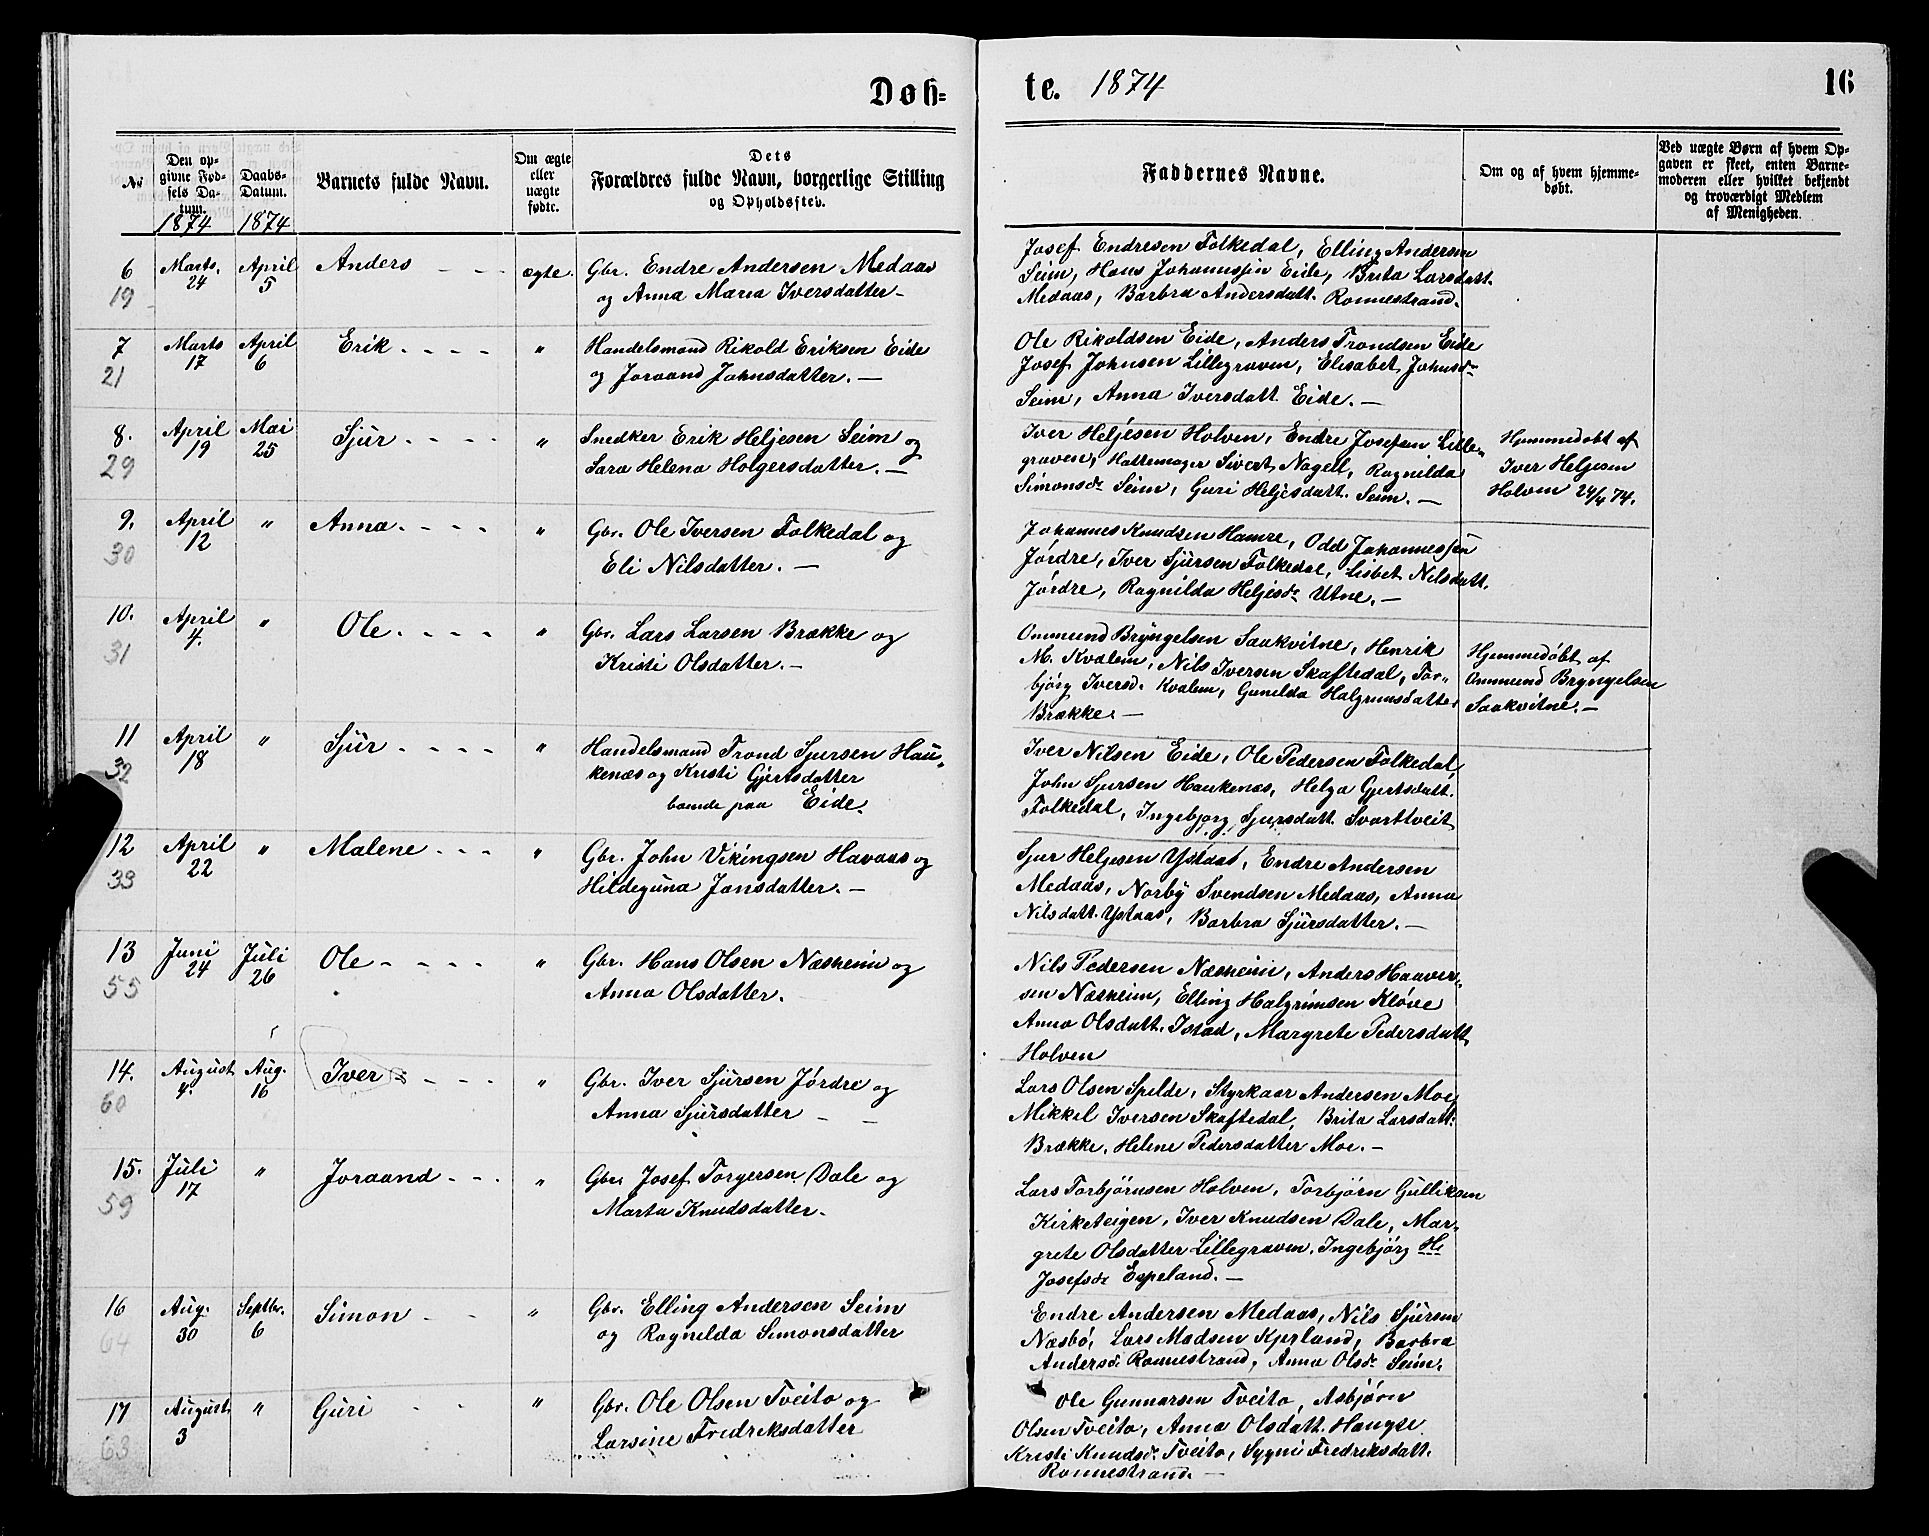 Døb=
te. 1874
16
No
Den op-
givne Fød-
sels Da-
tum.
1874
Daabs-
Datum.
1874
Barnets fulde Navn.
Om ægte
eller
uægte
fødte.
Dets
Forældres fulde Navn, borgerlige Stilling
og Opholdssted.
Faddernes Navne.
Om og af hvem hjemme-
døbt.
Ved uægte Børn af hvem Op-
gaven er skeet, enten Barne-
moderen eller hvilket bekjendt
og troværdigt Medlem
af Menigheden.
6
19
Marts.
24
April
5
Anders
ægte.
Gbr. Endre Andersen Medaas
og Anna Maria Iversdatter
Josef Endresen Folkedal, Elling Andersen
Seim, Hans Johannessen Eide, Brita Larsdatt.
Medaas, Barbra Andersdatt. Ronnestrand.
7
21
Marts
17
April
6
Erik
"
Handelsmand Rikold Eriksen Eide
og Joraand Johnsdatter.
Ole Rikoldsen Eide, Anders Trondsen Eide
Josef Johnsen Lillegraven, Elisabet Johnsdr
Seim, Anna Iversdatt. Eide.
8.
29
April
19
Mai
25
Sjur
"
Snedker Erik Heljesen Seim og
Sara Helena Holgersdatter.
Iver Heljesen Holven, Endre Josefsen Lille-
graven, Hattemager Sivert Nagell, Ragnilda
Simonsdr Seim, Guri Heljesdatt. Seim.
Hjemmedøbt af
Iver Heljesen
Holven 24/4 74.
9.
30
April
12
"
Anna
"
Gbr. Ole Iversen Folkedal og
Eli Nilsdatter.
Johannes Knudsen Hamre, Odd Johannessen
Jørdre, Iver Sjursen Folkedal, Lisbet Nilsdatt.
Jørdre, Ragnilda Heljesdr Utne.
10.
31
April
4.
"
Ole
"
Gbr. Lars Larsen Brække og
Kristi Olsdatter.
Ommund Bryngelsen Saakvitne, Henrik
M. Kvalem, Nils Iversen Skaftedal, Tor-
bjørg Iversd. Kvalem, Gunilda Halgrimsdatter
Brække.
Hjemmedøbt af
Ommund Bryngelsen
Saakvitne.
11
32
April
18
"
Sjur
"
Handelsmand Trond Sjursen Hau-
kenæs og Kristi Gjertsdatter
boende paa Eide.
Iver Nilsen Eide, Ole Pedersen Folkedal,
John Sjursen Haukenæs, Helga Gjertsdatt.
Folkedal, Ingebjørg Sjursdatt. Svartveit
12
33
April
22
"
Malene
"
Gbr. John Vikingsen Havaas og
Hildeguna Jansdatter.
Sjur Heljesen Ystaas, Endre Andersen
Medaas, Norby Svendsen Medaas, Anna
Nilsdatt. Ystaas, Barbra Sjursdatter.
13
55
Juni
24
Juli
26
Ole
"
Gbr. Hans Olsen Næsheim og
Anna Olsdatter.
Nils Pedersen Næsheim, Anders Haaver-
sen Næsheim, Elling Halgrimsen Kløve
Anna Olsdatt. Istad, Margrete Pedersdatt
Holven
14.
60
August
4.
Aug.
16
Iver
"
Gbr. Iver Sjursen Jørdre og
Anna Sjursdatter
Lars Olsen Spilde, Styrkaar Andersen Moe,
Mikkel Iversen Skaftedal, Brita Larsdatt.
Brække, Helene Pedersdatter Moe.
15.
59
Juli
17
"
Joraand
"
Gbr. Josef Torgersen Dale og
Marta Knudsdatter.
Lars Torbjørnsen Holven, Torbjørn Gulliksen
Kirketeigen, Iver Knudsen Dale, Mar-
grete Olsdatter Lillegraven, Ingebjørg H.
Josefsdr Espeland.
16
64
Aug.
30
Septbr.
6
Simon
"
Gbr. Elling Andersen Seim
og Ragnilda Simonsdatter
Endre Andersen Medaas, Nils Sjursen
Næsbø, Lars Madsen Kjerland, Barbra
Andersd. Ronnestrand, Anna Olsdr Seim.
17
63
August
3
"
Guri
"
Gbr. Ole Olsen Tveito og
Larsine Fredriksdatter
Ole Gunnarsen Tveito, Asbjørn
Olsen Tveito, Anna Olsdatt. Haugse
Kristi Knudsdr Tveito, Sygni Fredriksdatt.
Ronnestrand.